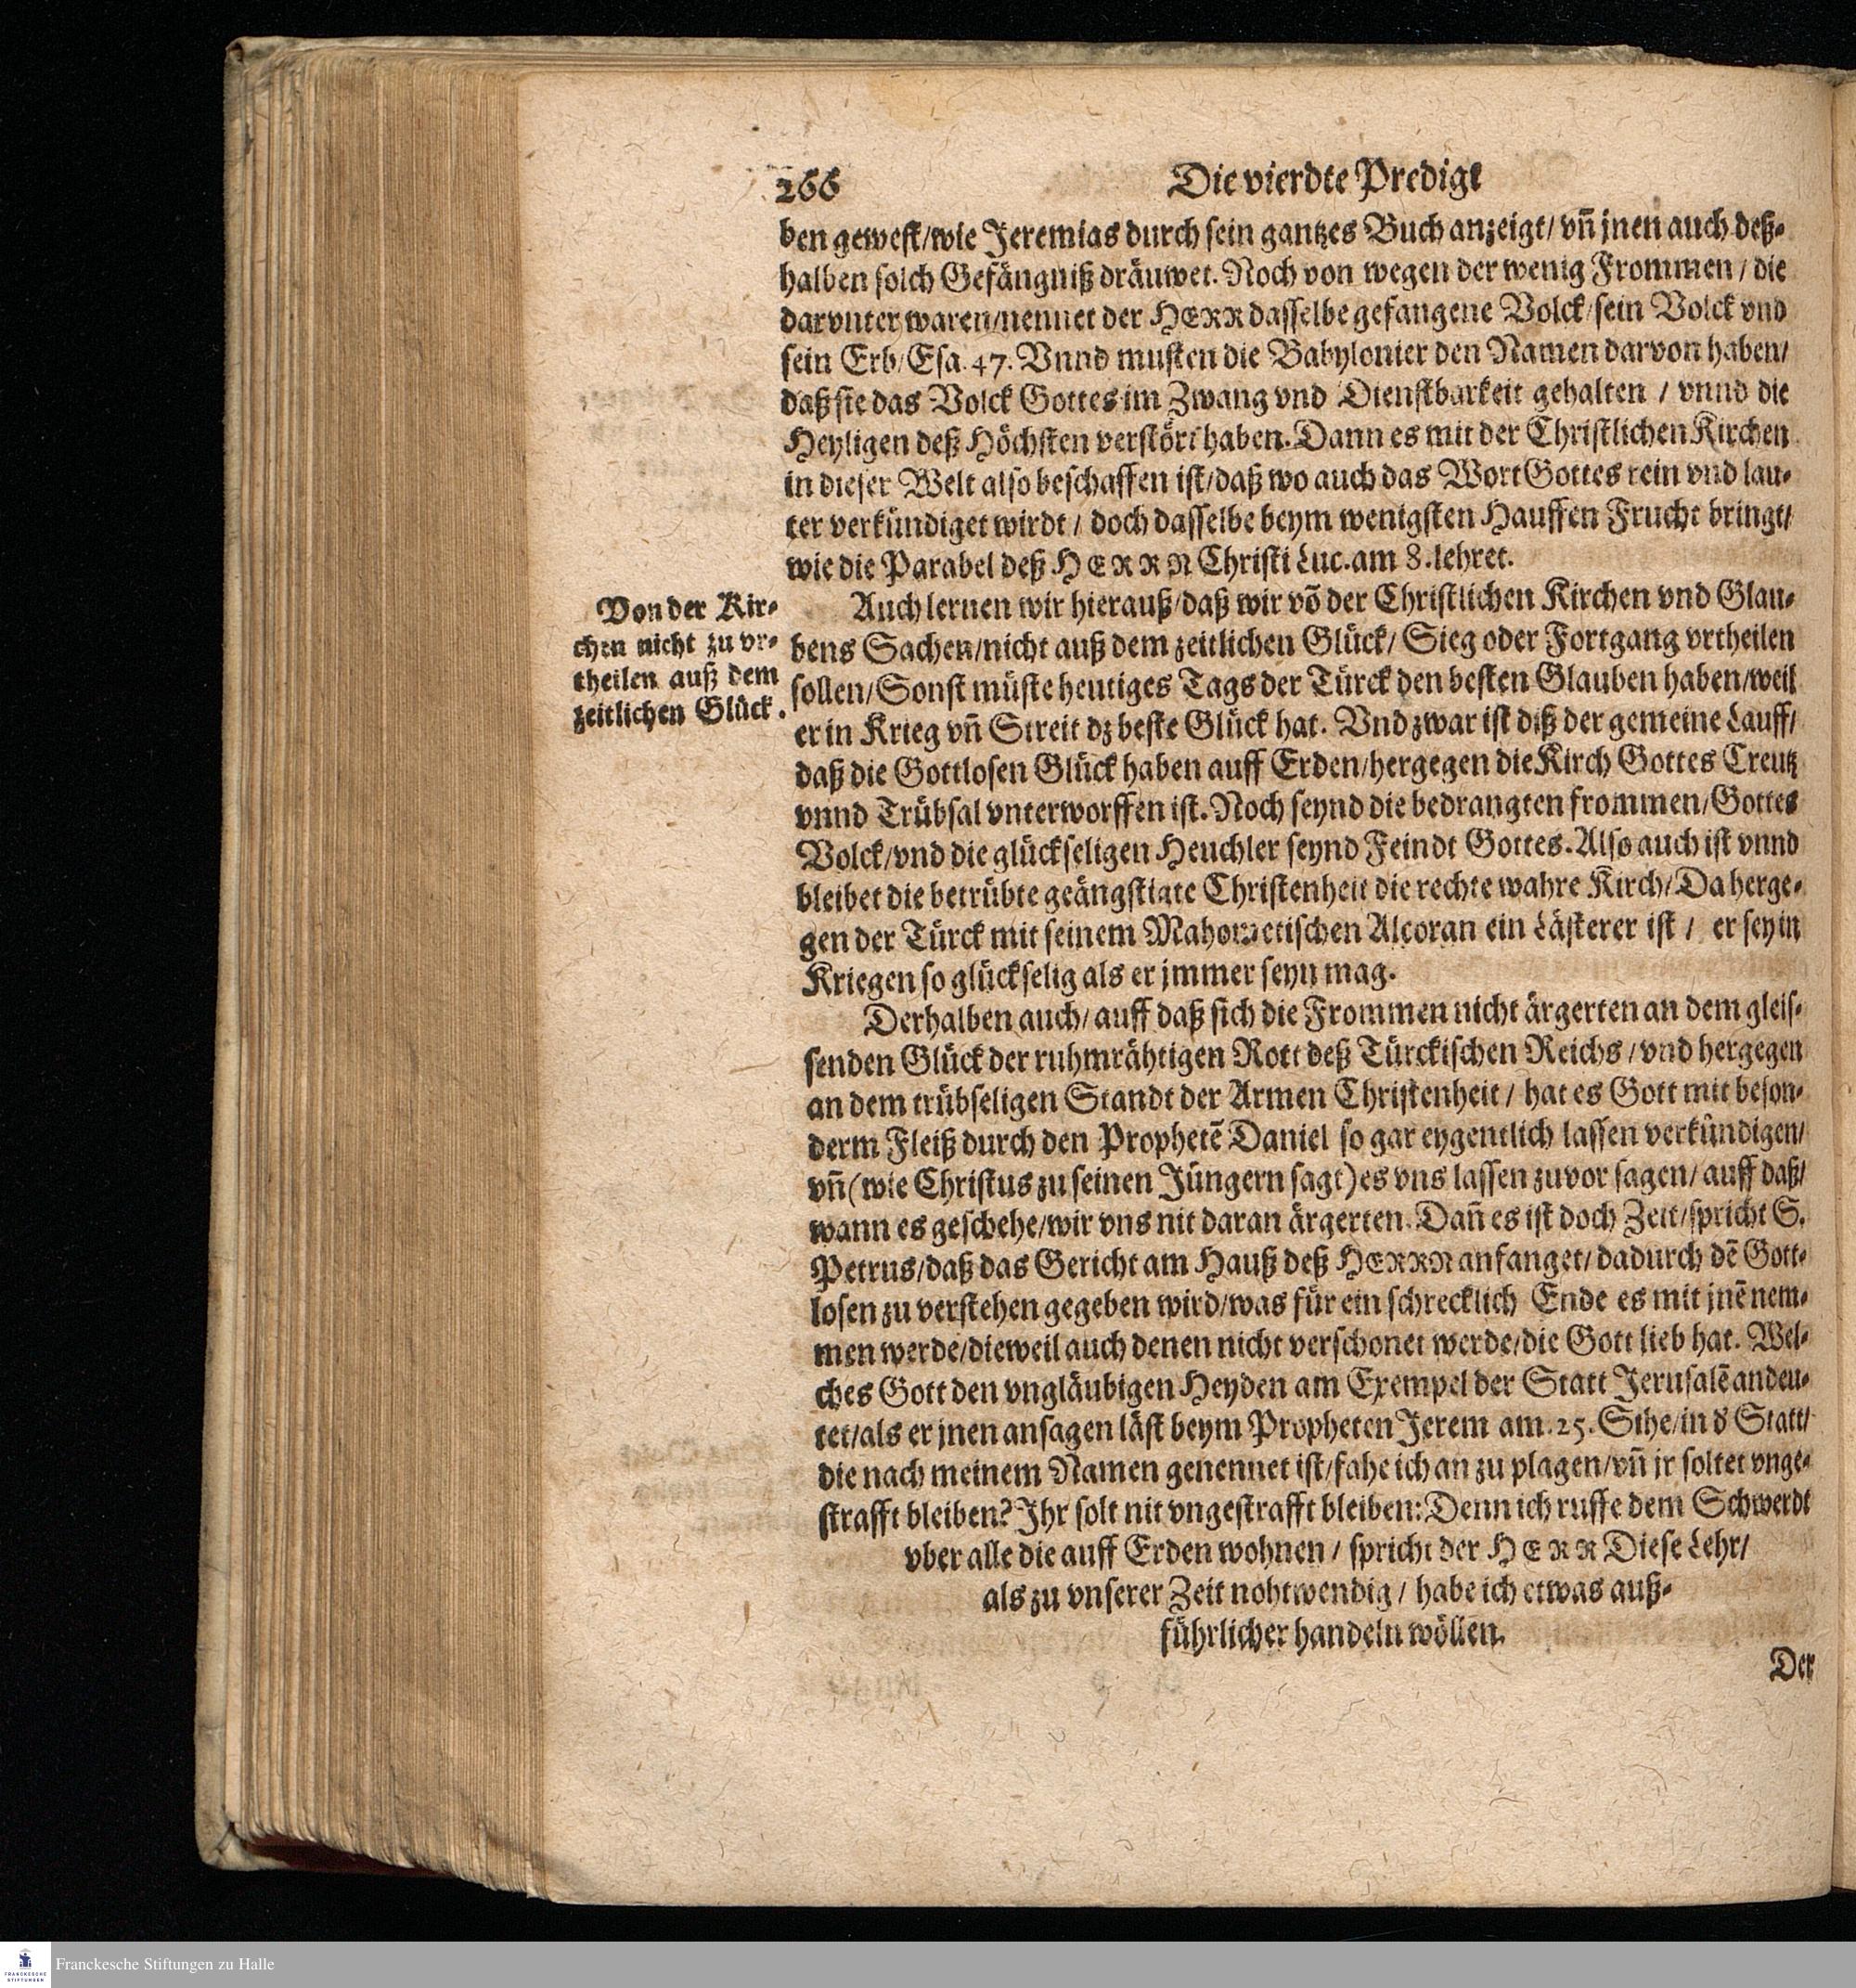 266 Die vierdte Predigt
ben gewest/wie Jeremias durch sein gantzes Buch anzeigt/ vñ jnen auch deß-
halben solch Gefängniß dräuwet. Noch von wegen der wenig Frommen / die
darvnter waren/nennet der HERR dasselbe gefangene Volck/sein Volck vnd
sein Erb/Esa. 47. Vnnd musten die Babylonier den Namen darvon haben/
daß sie das Volck Gottes im Zwang vnd Dienstbarkeit gehalten / vnnd die
Heyligen deß Höchsten verstört haben. Dann es mit der Christlichen Kirchen
in dieser Welt also beschaffen ist/daß wo auch das Wort Gottes rein vnd lau-
ter verkündiget wirdt / doch dasselbe beym wenigsten Hauffen Frucht bringt/
wie die Parabel deß HERRN Christi Luc. am 8. lehret.
Von der Kir-
chen nicht zu vr-
theilen auß dem
zeitlichen Glück.
Auch lernen wir hierauß/daß wir võ der Christlichen Kirchen vnd Glau-
bens Sachen/nicht auß dem zeitlichen Glück/ Sieg oder Fortgang vrtheilen
sollen/Sonst müste heutiges Tags der Türck den besten Glauben haben/weil
er in Krieg vñ Streit dz beste Glück hat. Vnd zwar ist diß der gemeine Lauff/
daß die Gottlosen Glück haben auff Erden/hergegen die Kirch Gottes Creutz
vnnd Trübsal vnterworffen ist. Noch seynd die bedrangten frommen/Gottes
Volck/vnd die glückseligen Heuchler seynd Feindt Gottes. Also auch ist vnnd
bleibet die betrübte geängstigte Christenheit die rechte wahre Kirch/Da herge-
gen der Türck mit seinem Mahometischen Alcoran ein Lästerer ist / er sey in
Kriegen so glückselig als er jmmer seyn mag.
Derhalben auch/ auff daß sich die Frommen nicht ärgerten an dem gleis-
senden Glück der ruhmrähtigen Rott deß Türckischen Reichs / vnd hergegen
an dem trübseligen Standt der Armen Christenheit / hat es Gott mit beson-
derm Fleiß durch den Prophetẽ Daniel so gar eygentlich lassen verkündigen/
vñ (wie Christus zu seinen Jüngern sagt) es vns lassen zuvor sagen/ auff daß/
wann es geschehe/wir vns nit daran ärgerten. Dañ es ist doch Zeit/spricht S.
Petrus/daß das Gericht am Hauß deß HERRN anfanget/ dadurch dẽ Gott-
losen zu verstehen gegeben wird/was für ein schrecklich Ende es mit jnẽ nem-
men werde/dieweil auch denen nicht verschonet werde/die Gott lieb hat. Wel-
ches Gott den vngläubigen Heyden am Exempel der Statt Jerusalẽ andeu-
tet/als er jnen ansagen läst beym Propheten Jerem am. 25. Sihe/in d' Statt/
die nach meinem Namen genennet ist/fahe ich an zu plagen/vñ jr soltet vnge-
strafft bleiben? Ihr solt nit vngestrafft bleiben: Denn ich ruffe dem Schwerdt
vber alle die auff Erden wohnen / spricht der HERR Diese Lehr/
als zu vnserer Zeit nohtwendig / habe ich etwas auß-
führlicher handeln wöllen.
Der
Franckesche Stiftungen zu Halle